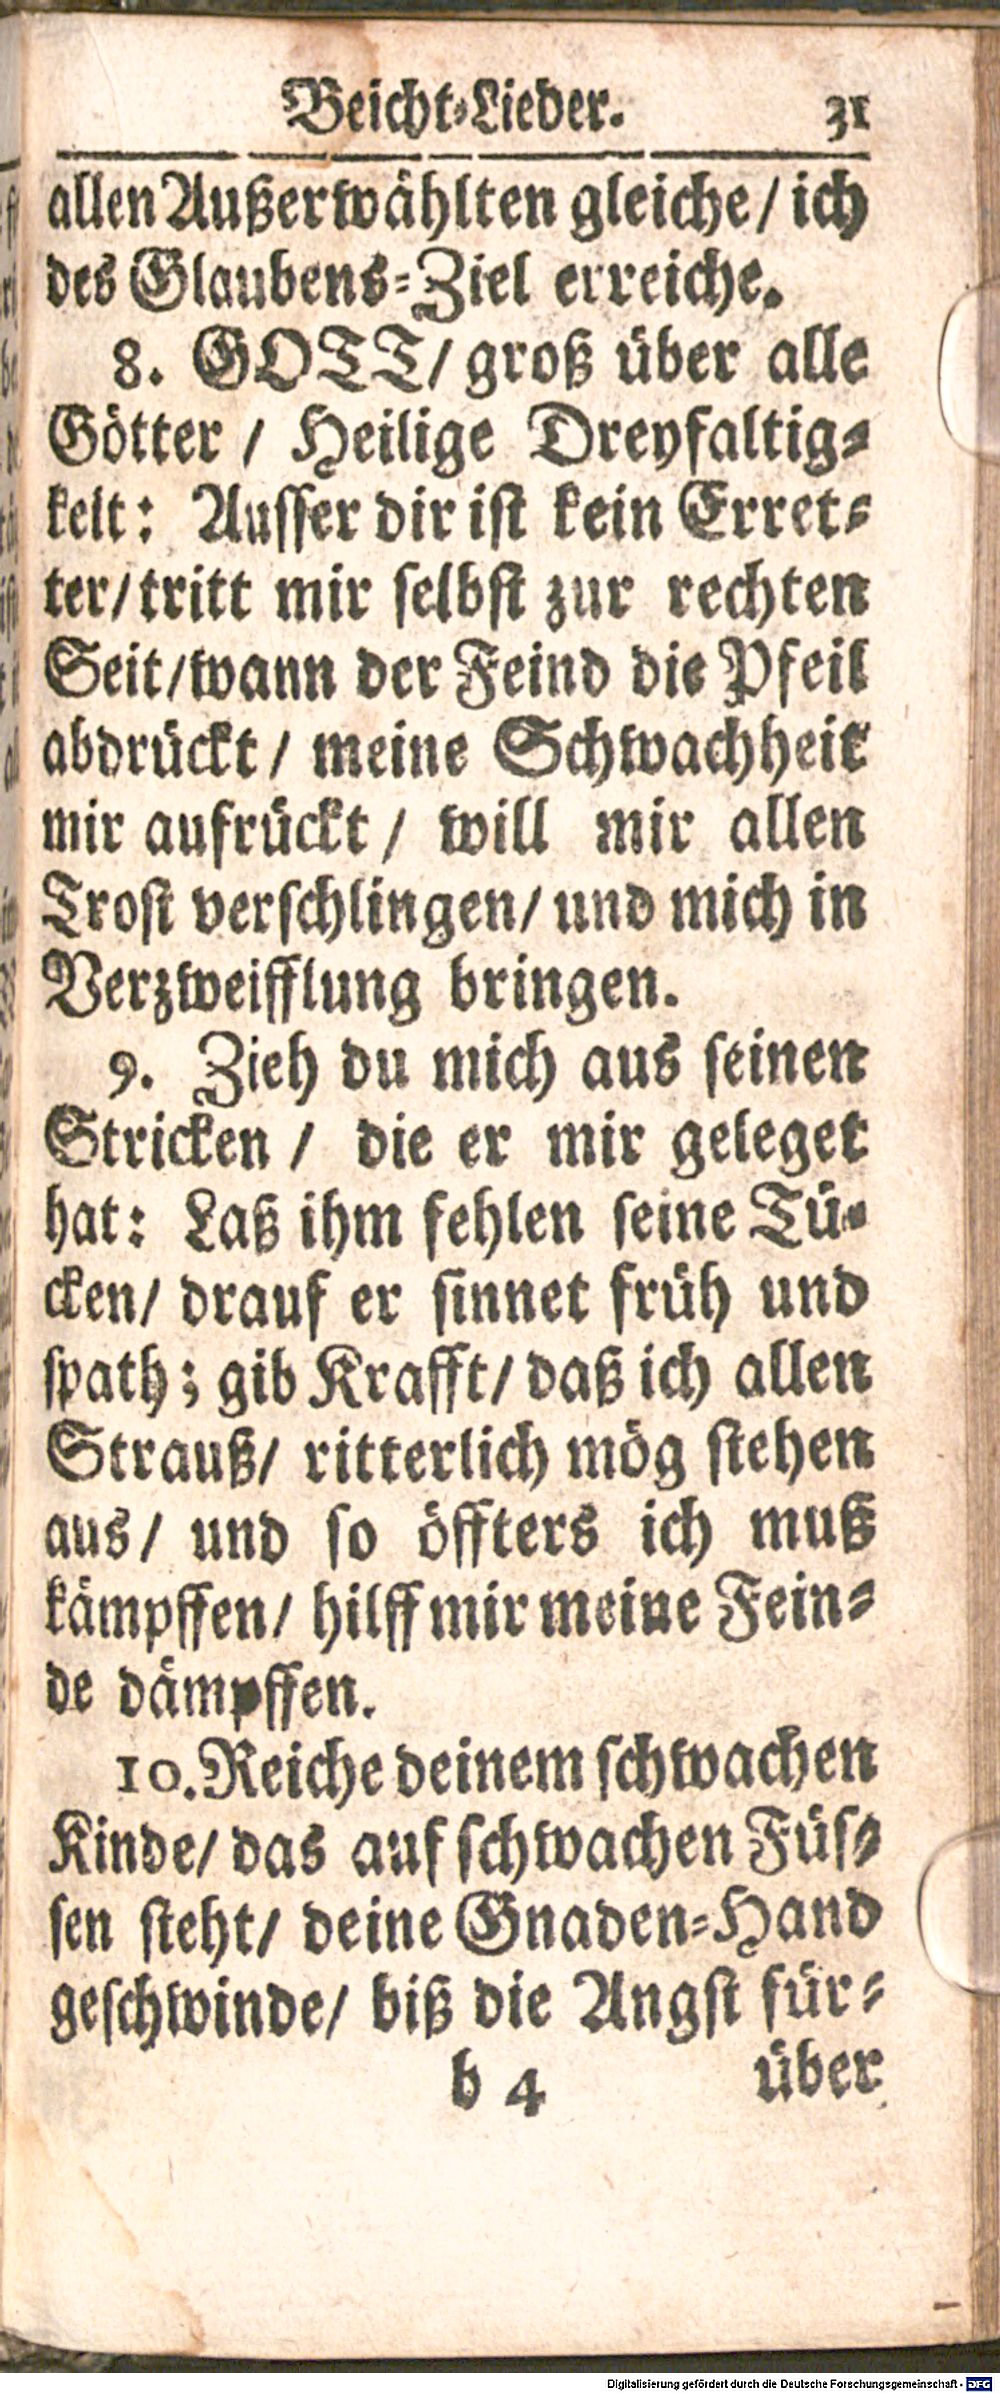 Beicht-Lieder. 31
allen Außerwählten gleiche/ ich
des Glaubens-Ziel erreiche.
8. GOTT/ groß über alle
Götter / Heilige Dreyfaltig-
kelt: Ausser dir ist kein Erret-
ter/ tritt mir selbst zur rechten
Seit/ wann der Feind die Pfeil
abdrückt / meine Schwachheit
mir aufrückt / will mir allen
Trost verschlingen/ und mich in
Verzweifflung bringen.
9. Zieh du mich aus seinen
Stricken / die er mir geleget
hat: Laß ihm fehlen seine Tü-
cken/ drauf er sinnet früh und
spath; gib Krafft/ daß ich allen
Strauß/ ritterlich mög stehen
aus/ und so öffters ich muß
kämpffen/ hilff mir meine Fein-
de dämpffen.
10. Reiche deinem schwachen
Kinde/ das auf schwachen Füs-
sen steht/ deine Gnaden-Hand
geschwinde/ biß die Angst für-
b 4 über
Digitalisierung gefördert durch die Deutsche Forschungsgemeinschaft - DFG